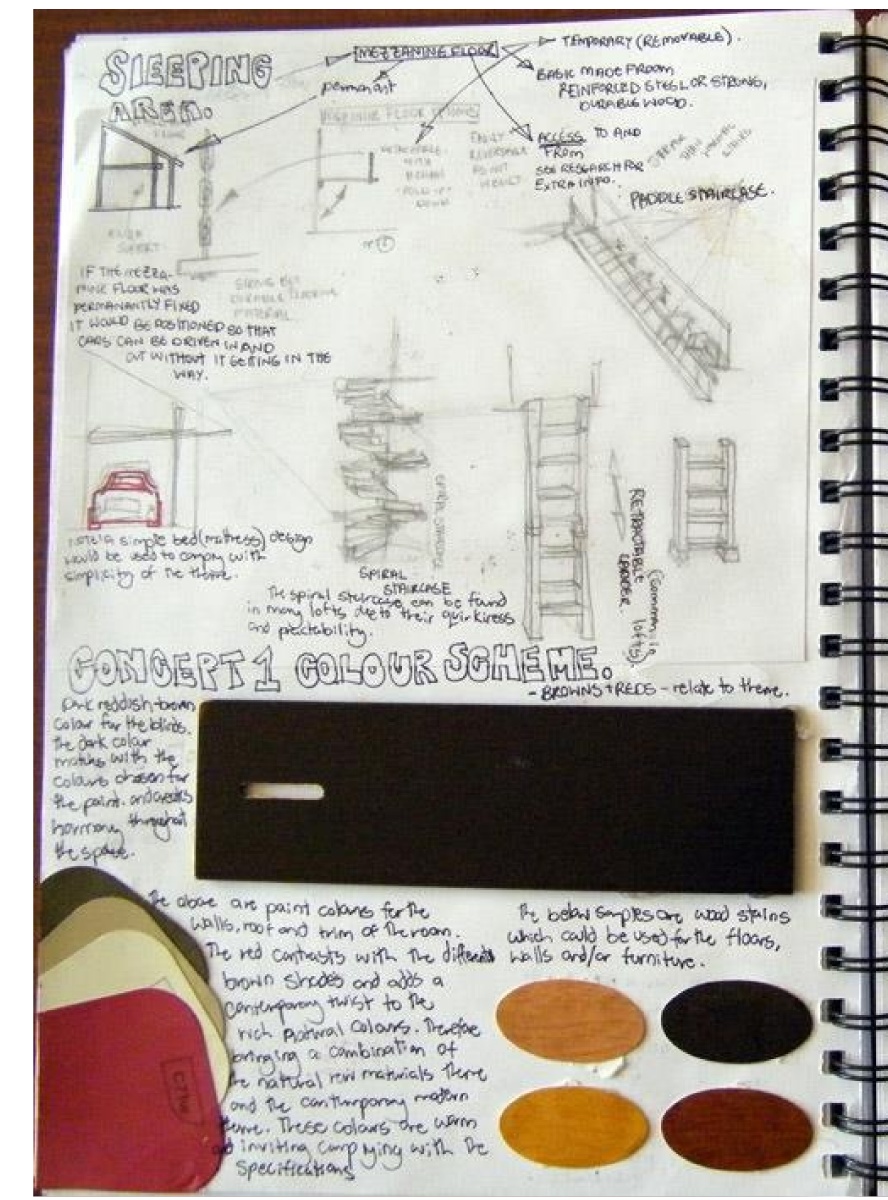 SLEEPING
AREA.
MEZZANINE FLOOR
TEMPORARY (REMOVABLE).
permanant
BASIC MADE FROOM
REINFORCED STEEL OR STRONG,
DURABLE WOOD.
ACCESS TO AND
FROM
SEE RESEARCH FOR
EXTRA INFO.
PADDLE STAIRCASE.
IF THE MEZZA-
NINE FLOOR WAS
PERMANANTLY FIXED
IT WOULD BE POSITIONED SO THAT
CARS CAN BE DRIVEN IN AND
OUT WITHOUT IT GETTING IN THE
WAY.
STRONG BUT
DURABLE
MATERIAL
a simple bed (mattress) design
would be used to comply with
simplicity of the theme.
SPIRAL
STAIRCASE
The spiral staircase can be found
in many lofts due to their quirkiress
and practability.
RETRACTABLE
LADDER.
(Common in
lofts)
CONCEPT 1 COLOUR SCHEME.
- BROWNS + REDS - relate to theme.
Dark reddish-brown
colour for the blinds.
The dark colour
matches with the
colours chosen for
the paint. and creates
harmony throughout
the space.
The above are paint colours for the
walls, roof and trim of the room.
The red contrasts with the different
brown shades and adds a
contemporary twist to the
rich natural colours. Therefore
bringing a combination of
the natural raw materials theme
and the contemporary modern
theme. These colours are warm
and inviting complying with the
specifications
The below samples are wood stains
which could be used for the floors,
walls and/or furniture.